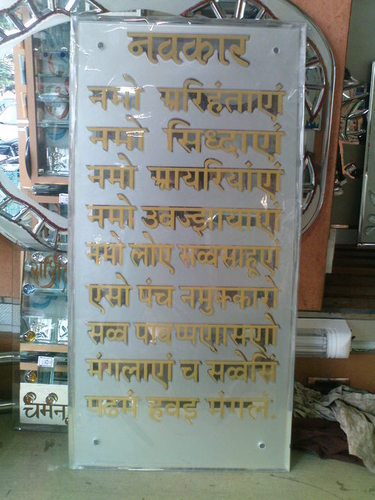 नवकार
नमो अरिहंताएां
नमो सिध्दाएां
नमो आयरियांएां
नमो उवज्झायाएां
नमो लोए सव्वसाहूएां
एसो पंच नमुक्कारो
सव्व पावप्पणासणो
मंगलाएां च सव्वेसिं
पढमं हवइ मंगलं.